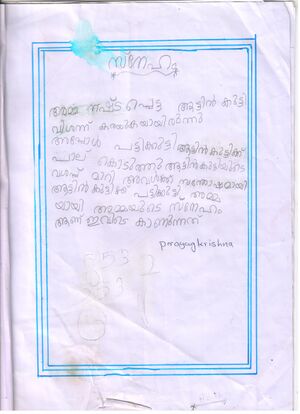 സ്നേഹം
അമ്മ നഷ്ട പ്പെട്ട ആട്ടിൻ കുട്ടി
വിശന്ന് കരയുകയായിരുന്നു
അപ്പോൾ പട്ടിക്കുട്ടി ആട്ടിൻകുട്ടിക്ക്
പാല് കൊടുത്തു ആട്ടിൻകുട്ടിയുടെ
വിശപ്പ് മാറി അവൾക്ക് സന്തോഷമായി
ആട്ടിൻകുട്ടിക്ക് പട്ടിക്കുട്ടി അമ്മ
യായി അമ്മയുടെ സ്നേഹം
ആണ് ഇവിടെ കാണുന്നത്
prayagkrishna
553 2
53